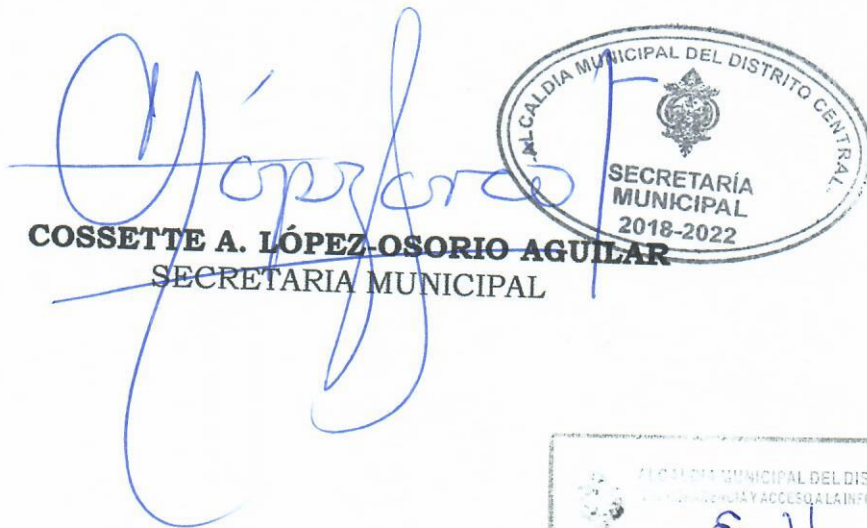 ALCALDIA MUNICIPAL DEL DISTRITO CENTRAL
SECRETARÍA
MUNICIPAL
2018-2022
COSSETTE A. LÓPEZ-OSORIO AGUILAR
SECRETARIA MUNICIPAL
ALCALDIA MUNICIPAL DEL DIS
Y ACCESO A LA INF